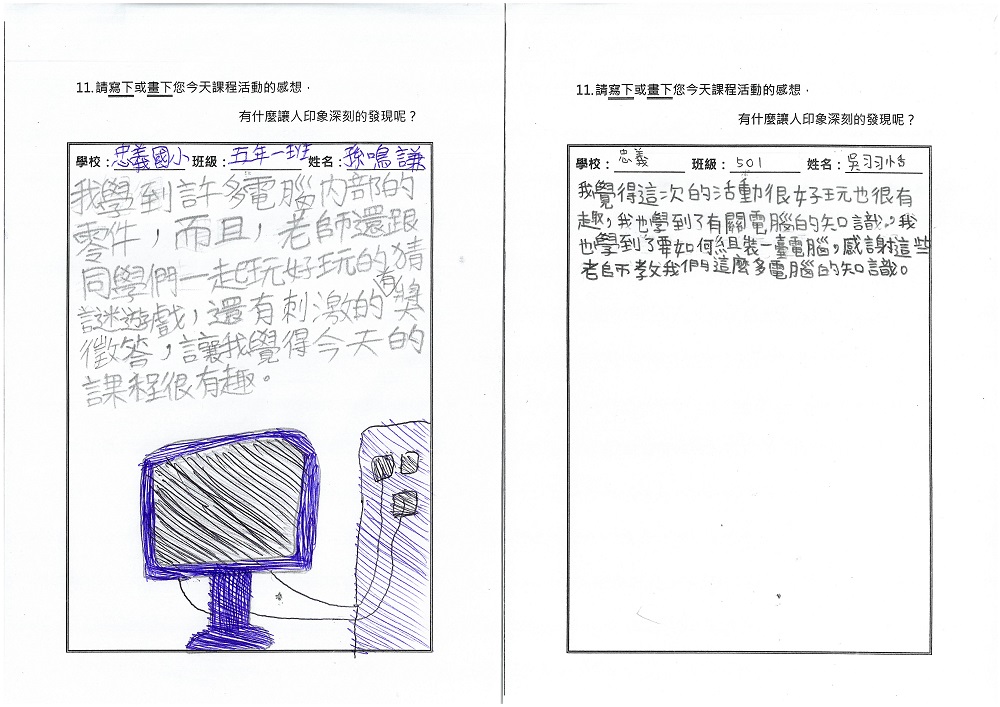 11.請寫下或畫下您今天課程活動的感想，
有什麼讓人印象深刻的發現呢？
學校：忠義國小 班級：五年一班 姓名：孫鳴謙
我學到許多電腦內部的
零件，而且，老師還跟
同學們一起玩好玩的猜
謎遊戲，還有刺激的有獎
徵答，讓我覺得今天的
課程很有趣。
11.請寫下或畫下您今天課程活動的感想，
有什麼讓人印象深刻的發現呢？
學校：忠義 班級：501 姓名：吳羽恬
我覺得這次的活動很好玩也很有
趣，我也學到了有關電腦的知識，我
也學到了要如何組裝一臺電腦，感謝這些
老師教我們這麼多電腦的知識。